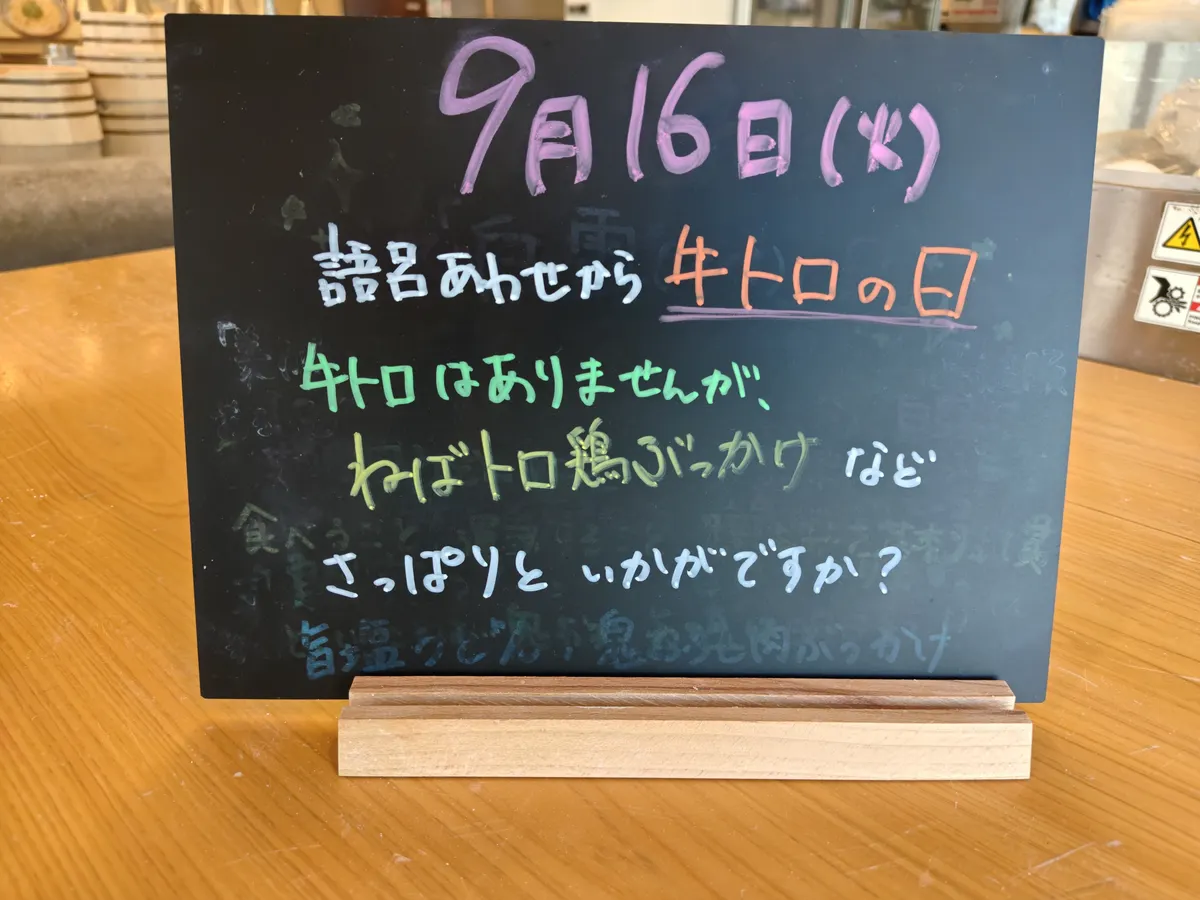 9月16日(火)
語呂あわせから 牛トロの日
牛トロはありませんが、
ねばトロ鶏ぶっかけ など
さっぱりと いかがですか?